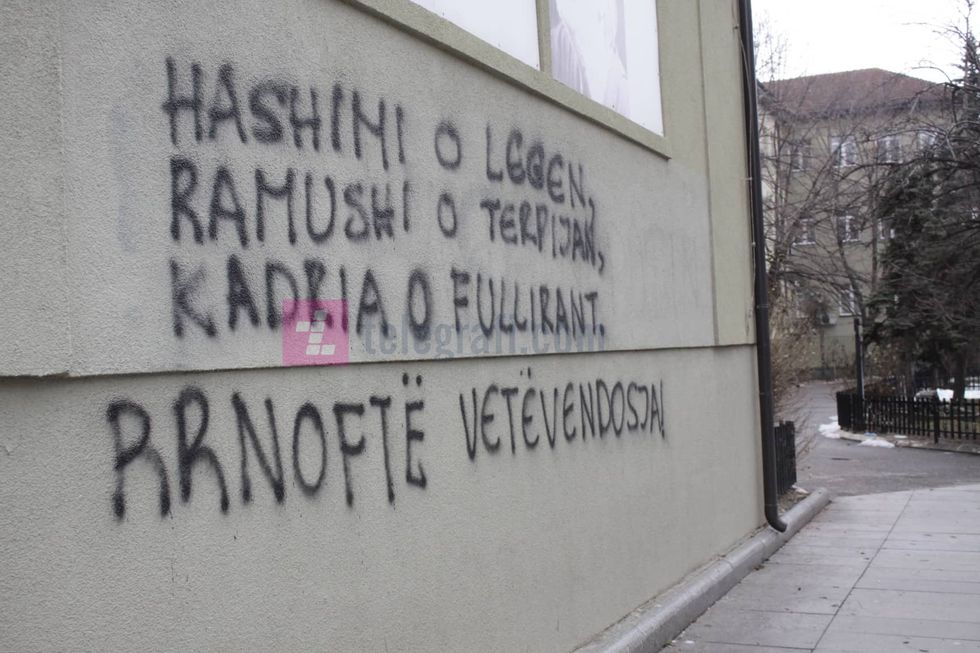 HASHIMI O LEGEN,
RAMUSHI O TERPIJAN,
KADRIA O FULLIRANT.
telegrafi.com
RRNOFTË VETËVENDOSJA!